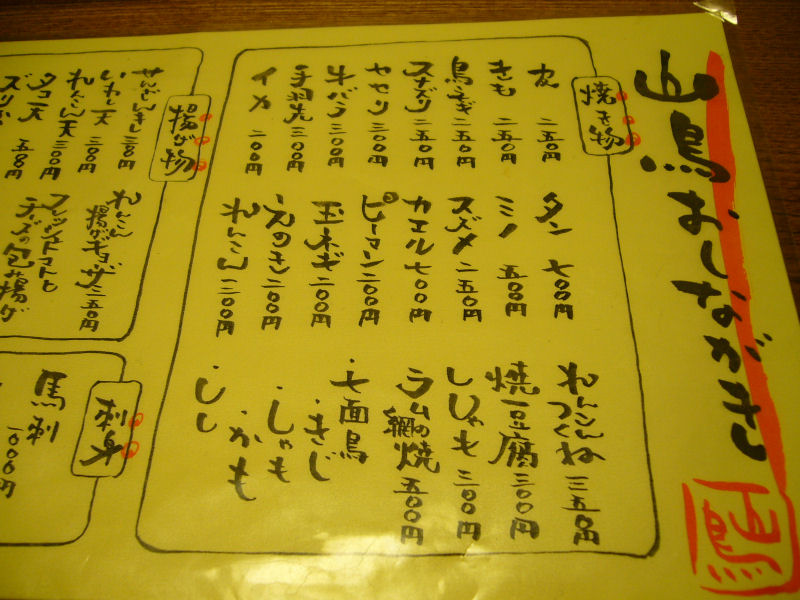 山鳥おしながき
焼き物
皮 二五〇円
きも 二五〇円
スナズリ 二五〇円
セセリ 三〇〇円
牛バラ 三〇〇円
手羽先 三〇〇円
イカ 二〇〇円
タン 七〇〇円
ミノ 五〇〇円
スズメ 二五〇円
カエル 七〇〇円
ピーマン 二〇〇円
玉ネギ 二〇〇円
えのき 二〇〇円
れんこん 二〇〇円
れんこんつくね 三五〇円
焼豆腐 三〇〇円
ししゃも 三〇〇円
ラムの網焼 五〇〇円
・七面鳥
・きじ
・しゃも
・かも
・しし
揚げ物
いわし天 三〇〇円
れんこん天 三〇〇円
タコ天 五〇〇円
れんこん
揚げギョーザ 三五〇円
フレッシュトマトと
チーズの包み揚げ
刺身
馬刺 一〇〇〇円